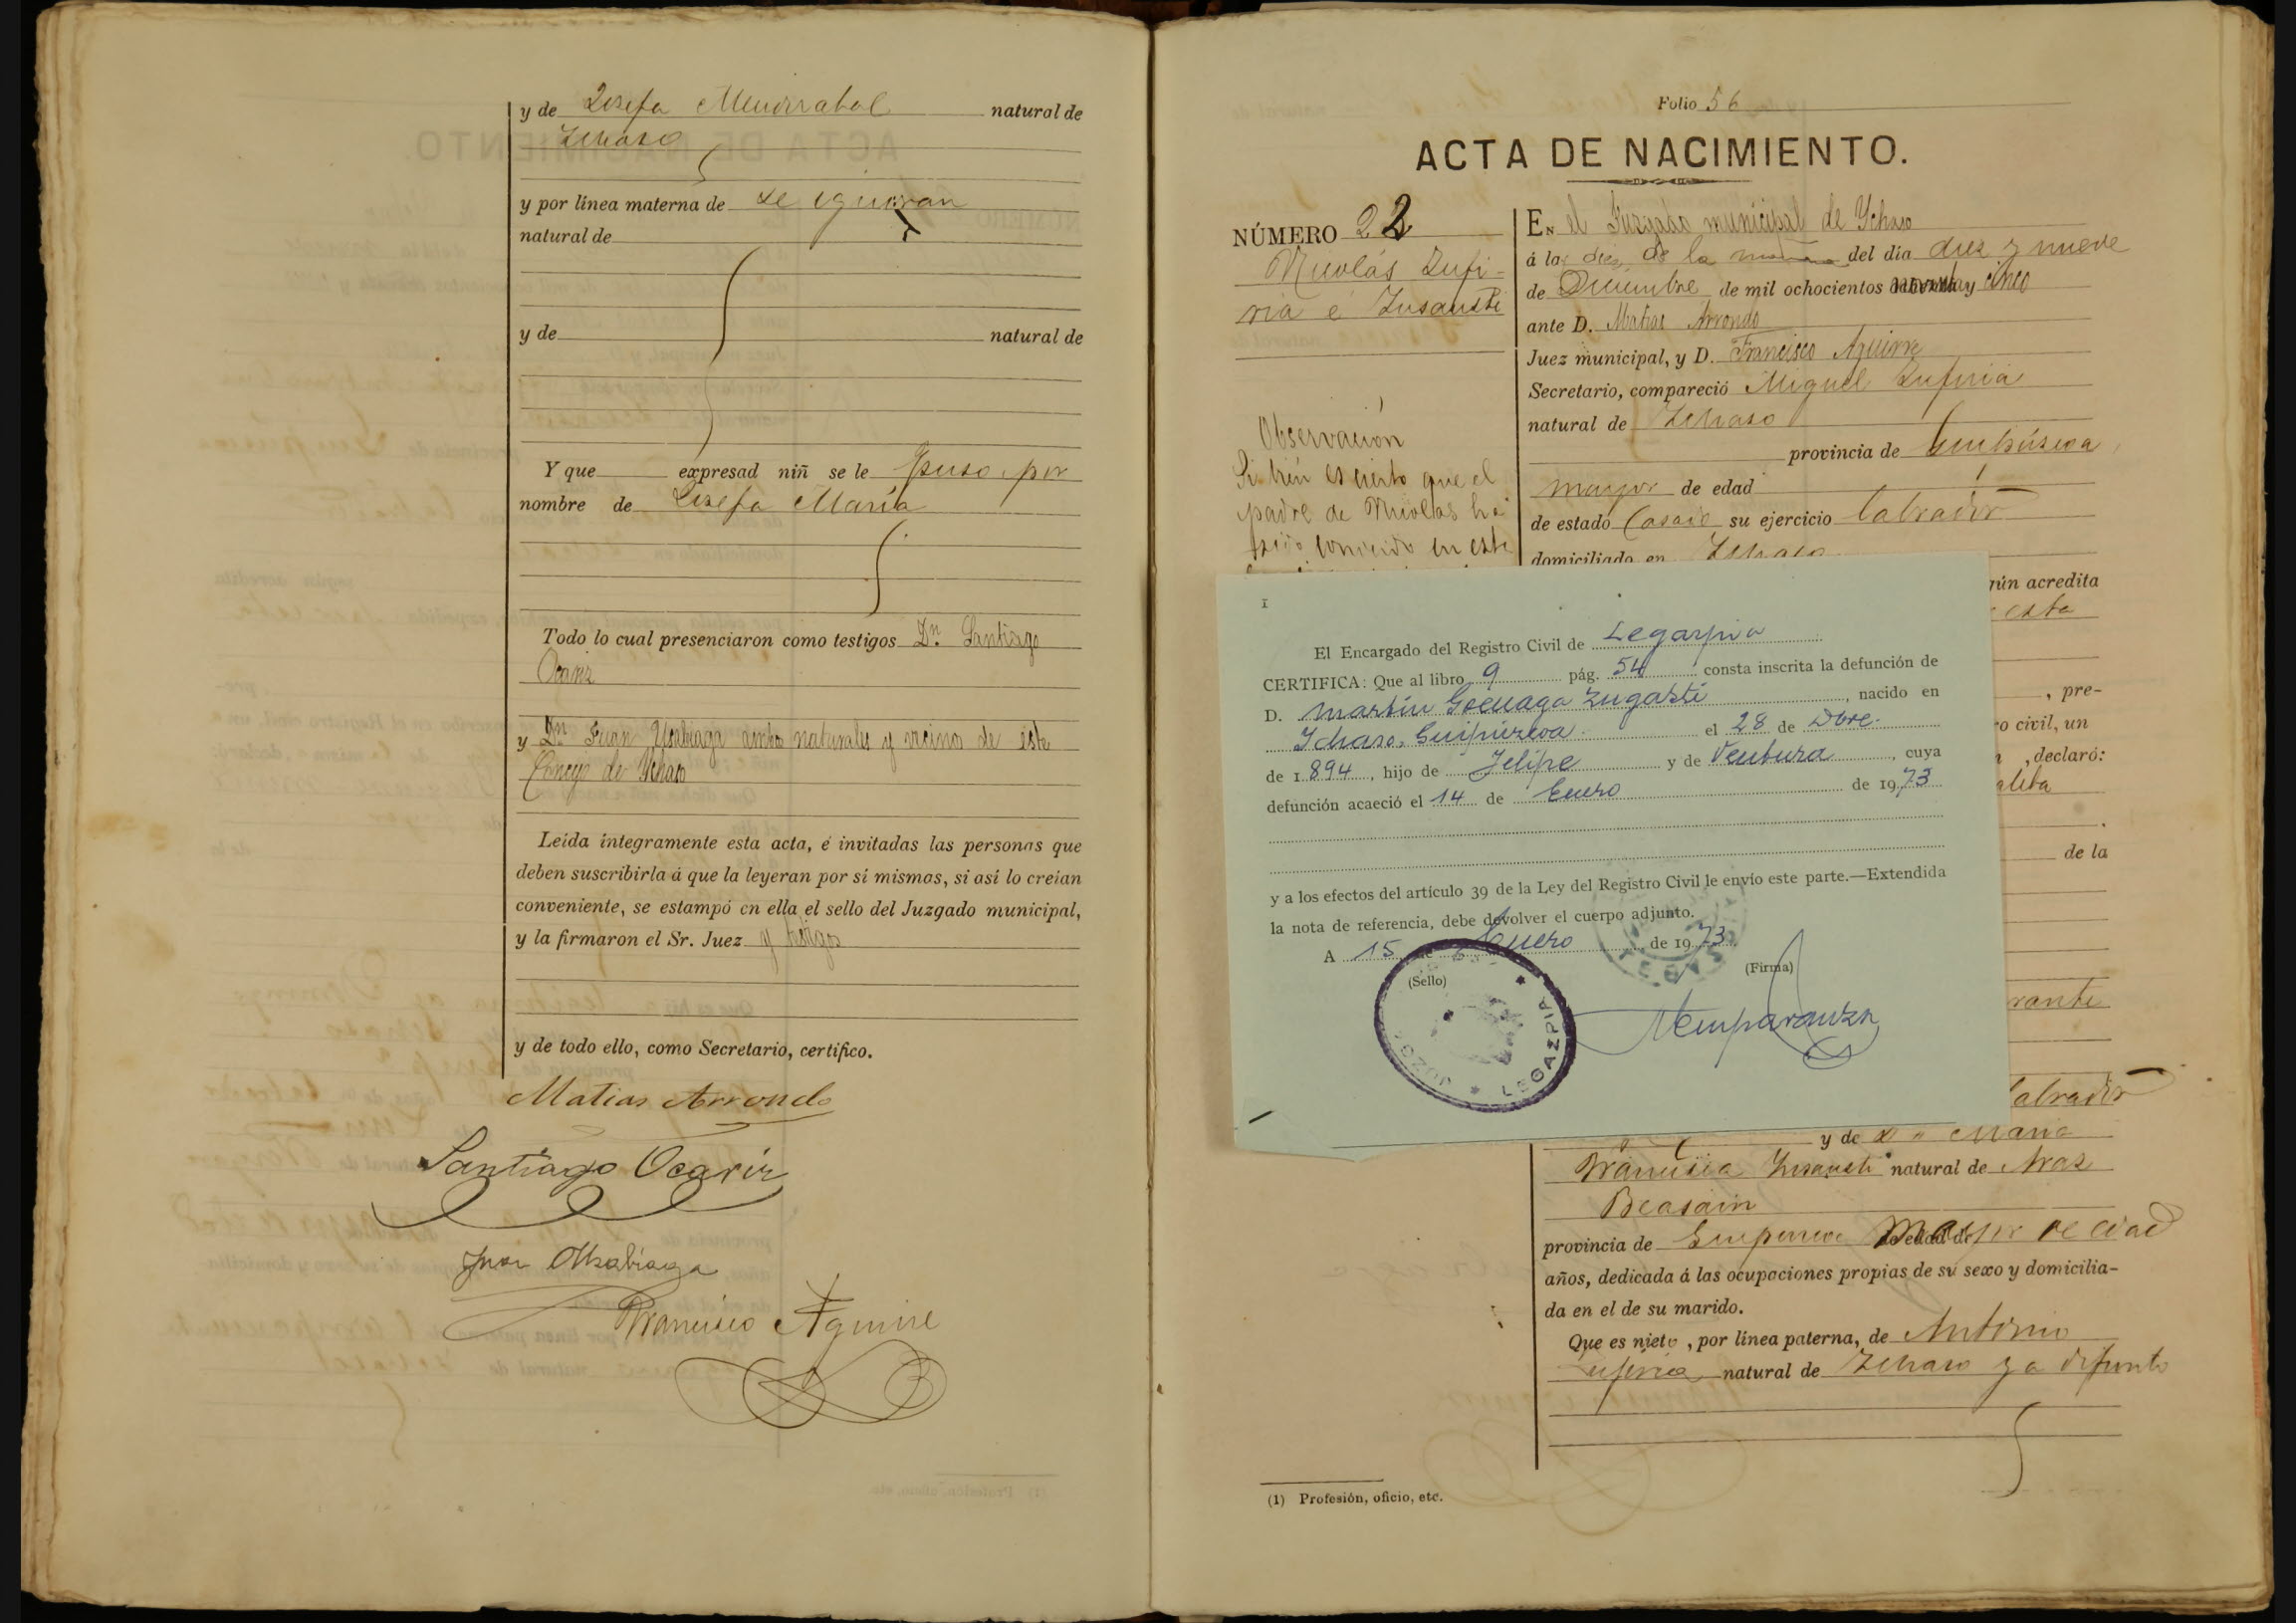 y de Josefa Mendizabal natural de
Ichaso
y por línea materna de se ignoran
natural de
y de natural de
Y que expresad niñ se le puso por
nombre de Josefa María
Todo lo cual presenciaron como testigos Dn. Santiago
Ocariz
y Dn. Juan Usabiaga ambos naturales y vecinos de este
Concejo de Ychaso
Leída íntegramente esta acta, é invitadas las personas que
deben suscribirla á que la leyeran por sí mismas, si así lo creían
conveniente, se estampó en ella el sello del Juzgado municipal,
y la firmaron el Sr. Juez y testigos
y de todo ello, como Secretario, certifico.
Matias Arrondo
Santiago Ocariz
Juan Usabiaga
Francisco Aguirre
Folio 56
ACTA DE NACIMIENTO.
NÚMERO 22
Nicolás Zufi-
ria é Insausti
Observación
Si bién es cierto que el
padre de Nicolas ha
sido conocido en este
En el Juzgado municipal de Ychaso
á las diez de la mañana del día diez y nueve
de Diciembre de mil ochocientos noventa y cinco
ante D. Matias Arrondo
Juez municipal, y D. Francisco Aguirre
Secretario, compareció Miguel Zufiria
natural de Ichaso
provincia de Guipúzcoa
mayor de edad
de estado Casado su ejercicio labrador
domiciliado en Ichaso
gún acredita
esta
, pre-
o civil, un
, declaró:
de la
rante
labrador
y de Dª Maria
Francisca Insausti natural de Aras
Beasain
provincia de Guipuzcoa mayor de edad
años, dedicada á las ocupaciones propias de su sexo y domicilia-
da en el de su marido.
Que es nieto, por línea paterna, de Antonio
Zufiria natural de Ichaso ya difunto
(1) Profesión, oficio, etc.
I
El Encargado del Registro Civil de Legazpia
CERTIFICA: Que al libro 9 pág. 54 consta inscrita la defunción de
D. Martín Goenaga Zugasti, nacido en
Ichaso, Guipúzcoa el 28 de Dbre.
de 1.894, hijo de Felipe y de Ventura, cuya
defunción acaeció el 14 de Enero de 1973
y a los efectos del artículo 39 de la Ley del Registro Civil le envío este parte.—Extendida
la nota de referencia, debe devolver el cuerpo adjunto.
A 15 de Enero de 1973
(Sello)
(Firma)
LEGAZPIA